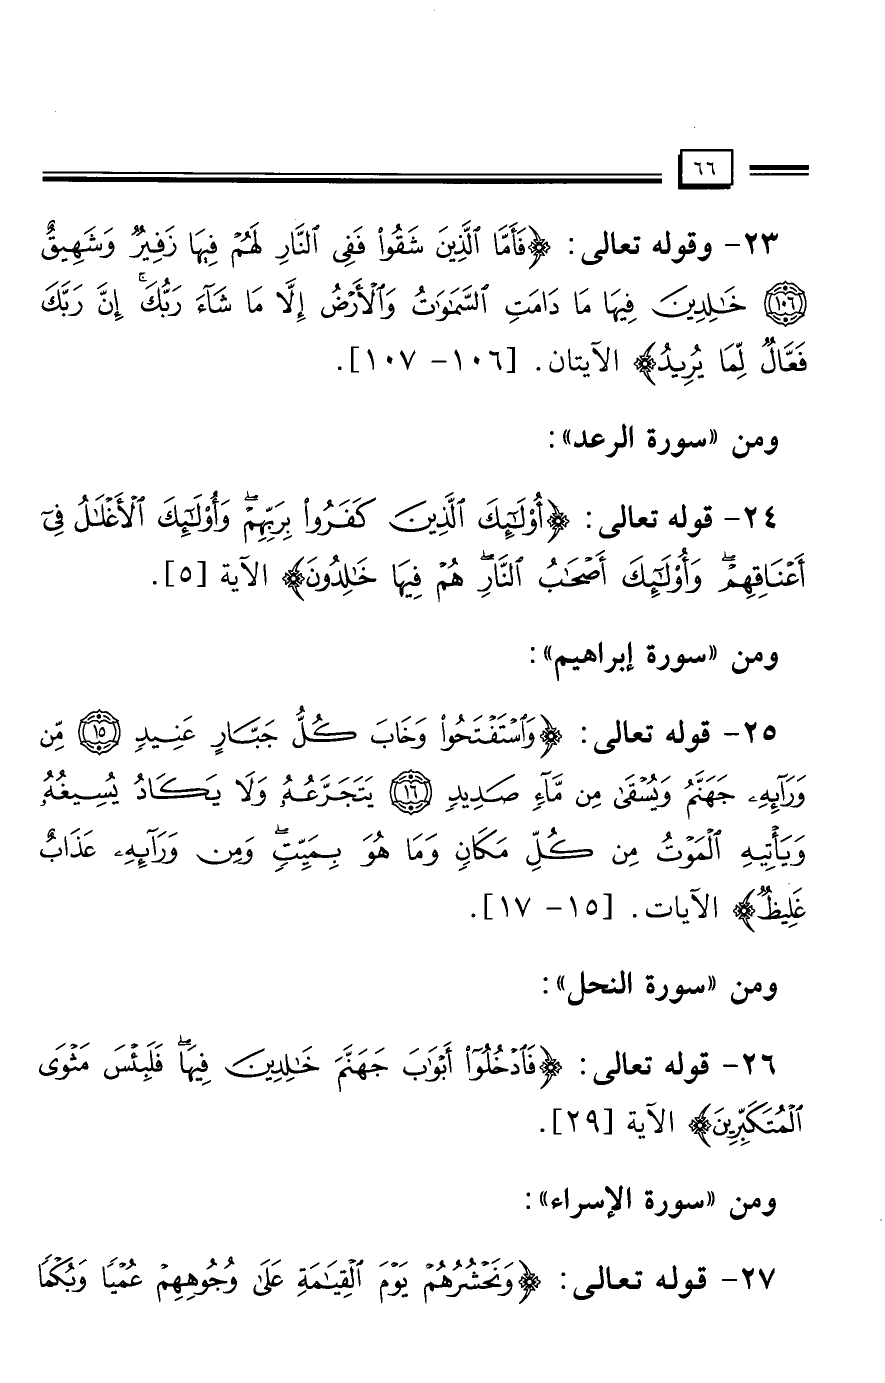 ٦٦
٢٣- وقوله تعالى: ﴿فَأَمَّا ٱلَّذِينَ شَقُوا۟ فَفِى ٱلنَّارِ لَهُمْ فِيهَا زَفِيرٌ وَشَهِيقٌ
(١٠٦) خَٰلِدِينَ فِيهَا مَا دَامَتِ ٱلسَّمَٰوَٰتُ وَٱلْأَرْضُ إِلَّا مَا شَآءَ رَبُّكَ ۚ إِنَّ رَبَّكَ
فَعَّالٌ لِّمَا يُرِيدُ﴾ الآيتان. [١٠٦- ١٠٧].
ومن «سورة الرعد»:
٢٤- قوله تعالى: ﴿أُو۟لَٰٓئِكَ ٱلَّذِينَ كَفَرُوا۟ بِرَبِّهِمْ ۖ وَأُو۟لَٰٓئِكَ ٱلْأَغْلَٰلُ فِىٓ
أَعْنَاقِهِمْ ۖ وَأُو۟لَٰٓئِكَ أَصْحَٰبُ ٱلنَّارِ ۖ هُمْ فِيهَا خَٰلِدُونَ﴾ الآية [٥].
ومن «سورة إبراهيم»:
٢٥- قوله تعالى: ﴿وَٱسْتَفْتَحُوا۟ وَخَابَ كُلُّ جَبَّارٍ عَنِيدٍ (١٥) مِّن
وَرَآئِهِۦ جَهَنَّمُ وَيُسْقَىٰ مِن مَّآءٍ صَدِيدٍ (١٦) يَتَجَرَّعُهُۥ وَلَا يَكَادُ يُسِيغُهُۥ
وَيَأْتِيهِ ٱلْمَوْتُ مِن كُلِّ مَكَانٍ وَمَا هُوَ بِمَيِّتٍ ۖ وَمِن وَرَآئِهِۦ عَذَابٌ
غَلِيظٌ﴾ الآيات. [١٥- ١٧].
ومن «سورة النحل»:
٢٦- قوله تعالى: ﴿فَٱدْخُلُوٓا۟ أَبْوَٰبَ جَهَنَّمَ خَٰلِدِينَ فِيهَا ۖ فَلَبِئْسَ مَثْوَى
ٱلْمُتَكَبِّرِينَ﴾ الآية [٢٩].
ومن «سورة الإسراء»:
٢٧- قوله تعالى: ﴿وَنَحْشُرُهُمْ يَوْمَ ٱلْقِيَٰمَةِ عَلَىٰ وُجُوهِهِمْ عُمْيًا وَبُكْمًا